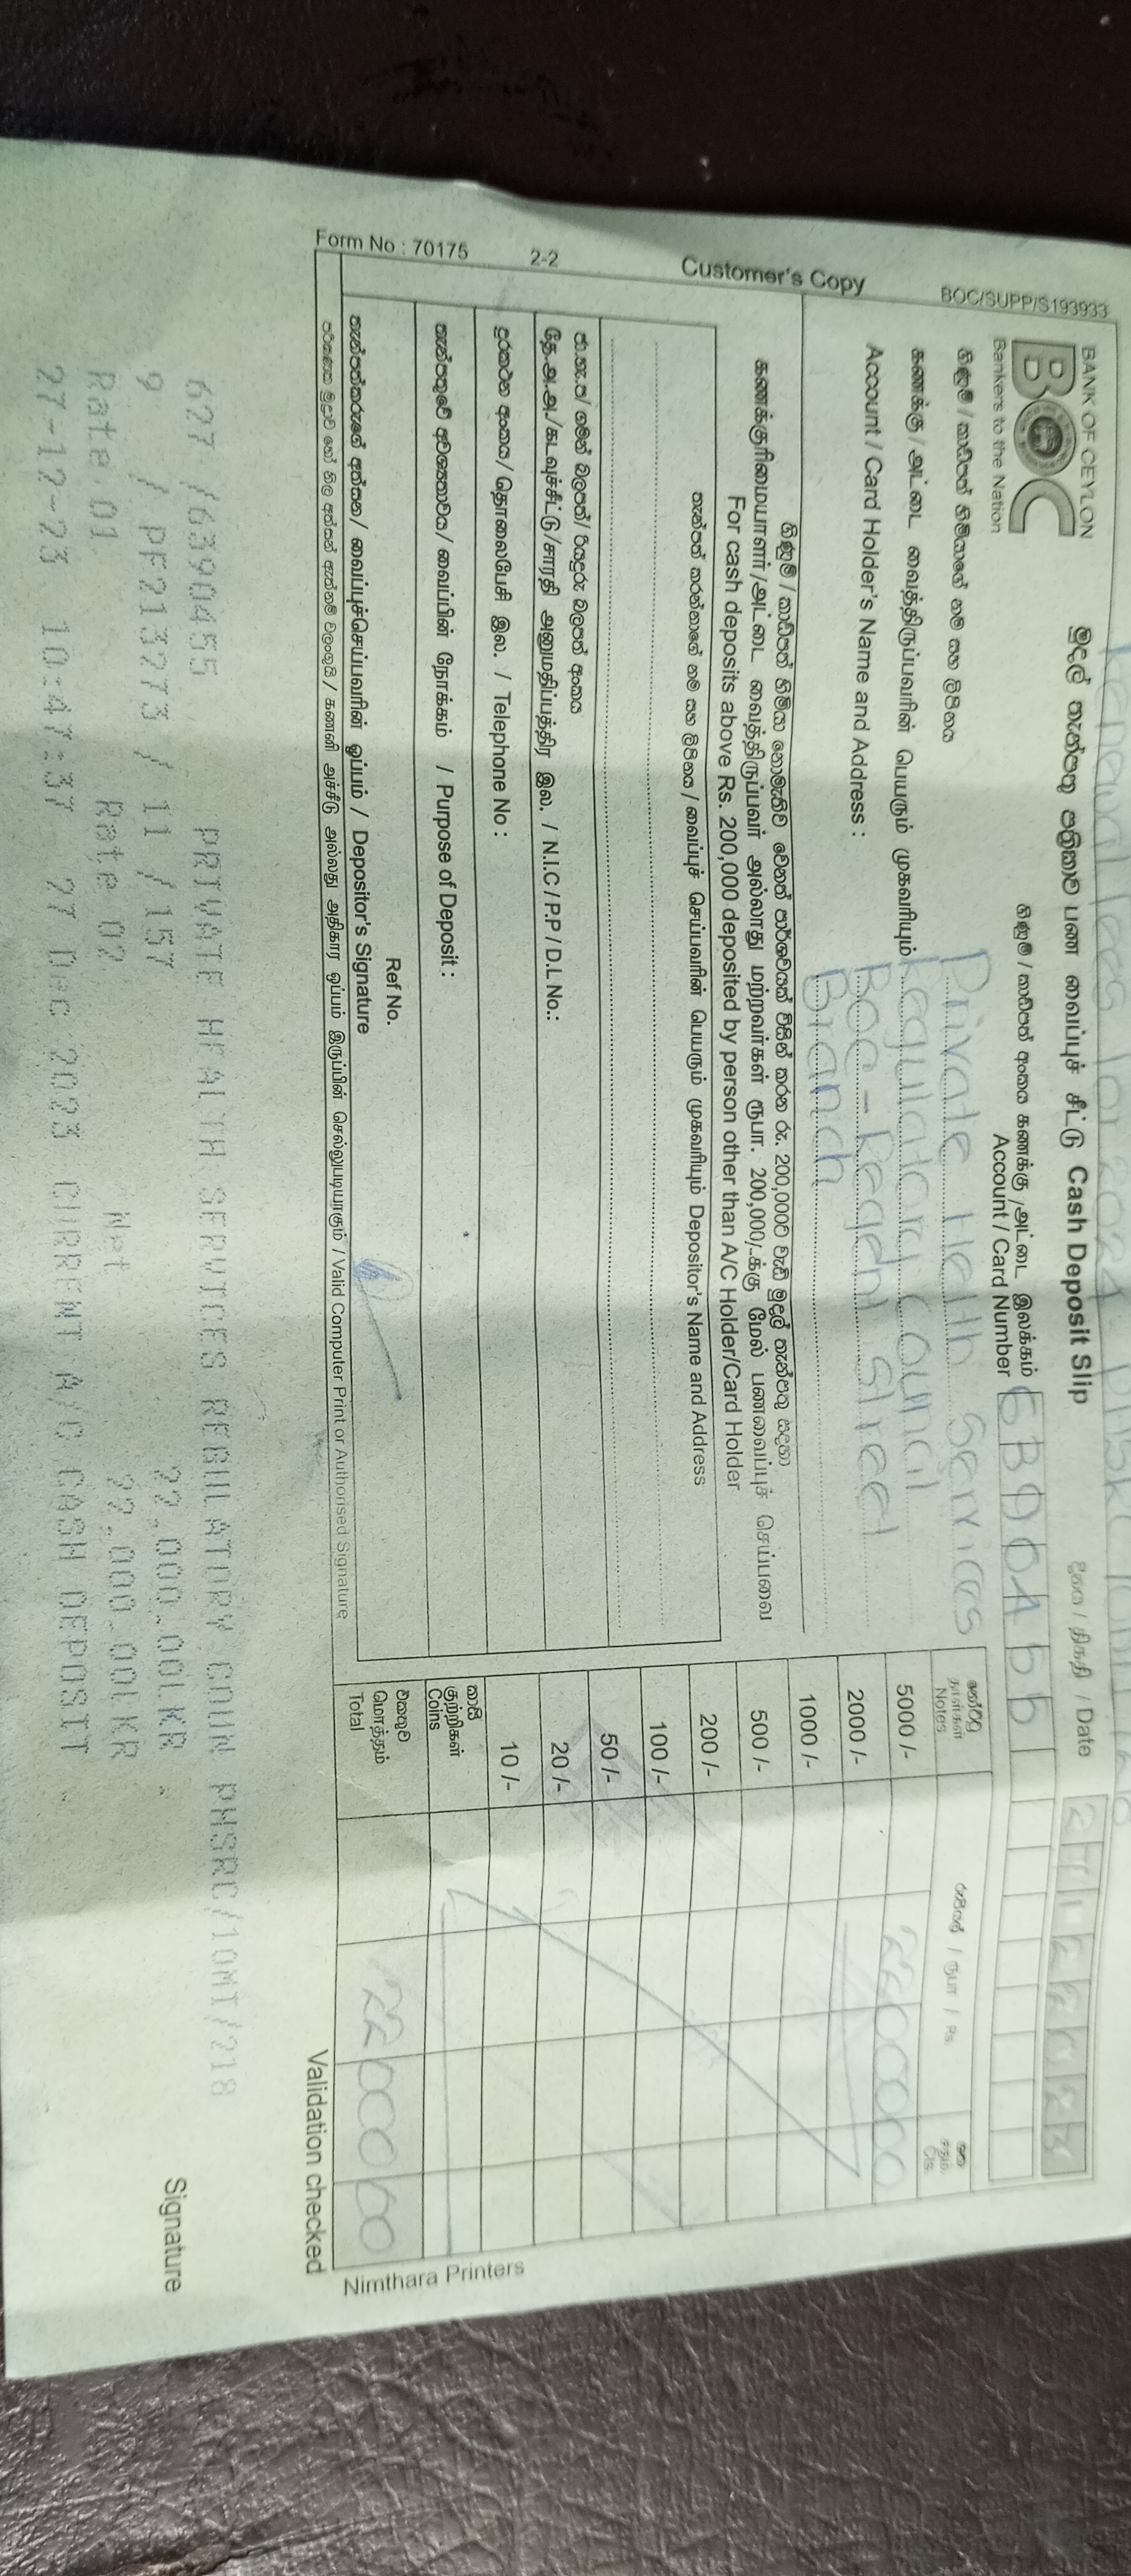 BOC/SUPP/S193933
Customer's Copy
2-2
Form No : 70175
BANK OF CEYLON
BOC
Bankers to the Nation
මුදල් තැන්පතු පත්‍රිකාව பண வைப்புச் சீட்டு Cash Deposit Slip
දිනය / திகதி / Date
ගිණුම් / කාඩ්පත් අංකය கணக்கு /அட்டை இலக்கம்
Account / Card Number
ගිණුම් / කාඩ්පත් හිමියාගේ නම සහ ලිපිනය
கணக்கு / அட்டை வைத்திருப்பவரின் பெயரும் முகவரியும்
Account / Card Holder's Name and Address :
Private Helth Services
Regulatory Council
Boc - Regent street
Branch
ගිණුම් / කාඩ්පත් හිමියා නොමැතිව වෙනත් පාර්ශවයක් විසින් කරන රු. 200,000ට වැඩි මුදල් තැන්පතු සඳහා
கணக்குரிமையாளர் /அட்டை வைத்திருப்பவர் அல்லாது மற்றவர்கள் ரூபா. 200,000/-க்கு மேல் பணவைப்புச் செய்பவை
For cash deposits above Rs. 200,000 deposited by person other than A/C Holder/Card Holder
තැන්පත් කරන්නාගේ නම සහ ලිපිනය / வைப்புச் செய்பவரின் பெயரும் முகவரியும் Depositor's Name and Address
ජා.හැ.ප/ ගමන් බලපත්/ රියදුරු බලපත් අංකය
தே.அ.அ./கடவுச்சீட்டு/சாரதி அனுமதிப்பத்திர இல. / N.I.C / P.P / D.L No.:
දුරකථන අංකය/ தொலைபேசி இல. / Telephone No :
තැන්පතුවේ අවශ්‍යතාවය/ வைப்பின் நோக்கம் / Purpose of Deposit :
Ref No.
තැන්පත්කරුගේ අත්සන/ வைப்புச்செய்பவரின் ஒப்பம் / Depositor's Signature
பරිගණක මුද්‍රාව හෝ නිල අත්සන් ඇත්නම් වලංගුයි / கணனி அச்சீடு அல்லது அதிகார ஒப்பம் இருப்பின் செல்லுபடியாகும் / Valid Computer Print or Authorised Signature
නෝට්ටු
தாள்கள்
Notes
රුපියල් / ரூபா / Rs.
ශත
சதம்
Cts
5000 /- 2200000
2000 /-
1000 /-
500 /-
200 /-
100 /-
50 /-
20 /-
10 /-
කාසි
குற்றிகள்
Coins
එකතුව
மொத்தம்
Total
22000 00
Nimthara Printers
Validation checked
Signature
627 /6390455 PRIVATE HEALTH SERVICES REGULATORY COUN PHSRC/10MT/218
9 / PF213273 / 11 /157 22,000.00LKR
Rate 01 Rate 02 Net 22,000.00LKR
27-12-23 10:47:37 27 Dec 2023 CURRENT A/C CASH DEPOSIT